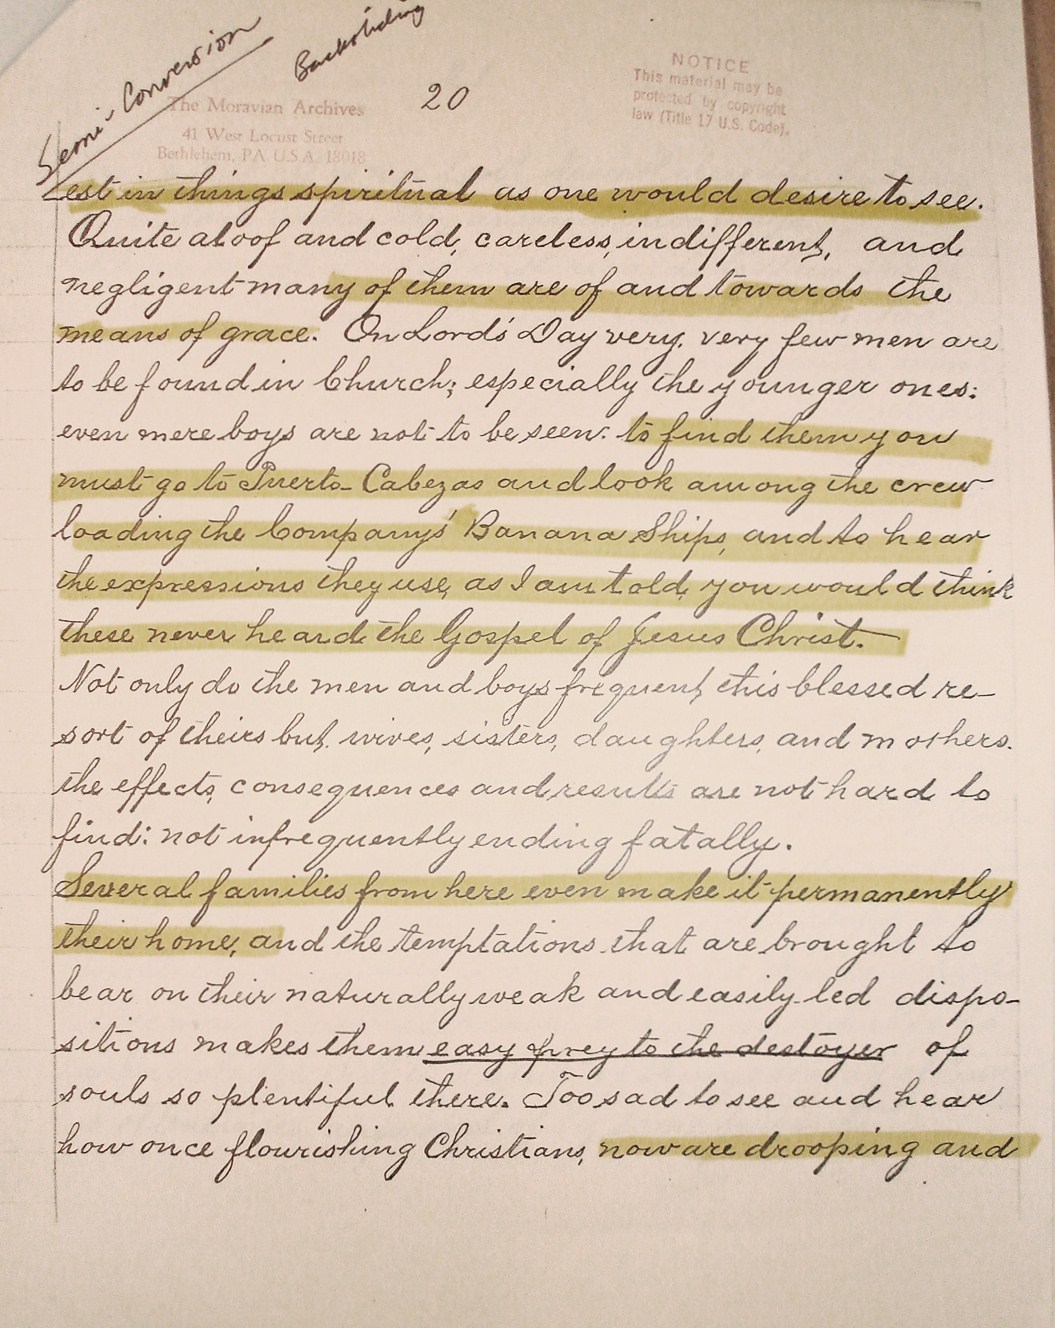 Semi-Conversion
Backsliding
20
NOTICE
This material may be
protected by copyright
law (Title 17 U.S. Code).
The Moravian Archives
41 West Locust Street
Bethlehem, PA U.S.A. 18018
est in things spiritual as one would desire to see.
Quite aloof and cold, careless, indifferent, and
negligent many of them are of and towards the
means of grace. On Lord's Day very, very few men are
to be found in Church; especially the younger ones:
even mere boys are not to be seen: to find them you
must go to Puerto-Cabezas and look among the crew
loading the Company's' Banana Ships, and to hear
the expressions they use, as I am told, you would think
these never heard the Gospel of Jesus Christ.
Not only do the men and boys frequent, this blessed re-
sort of theirs but, wives, sisters, daughters, and mothers.
the effects, consequences and results are not hard to
find: not infrequently ending fatally.
Several families from here even make it permanently
their home, and the temptations that are brought to
bear on their naturally weak and easily-led dispo-
sitions makes them easy prey to the destoyer of
souls so plentiful there. Too sad to see and hear
how once flourishing Christians, now are drooping and